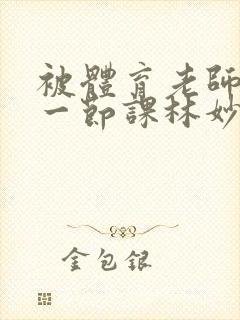 被體育老師
一節課林妙
金包銀